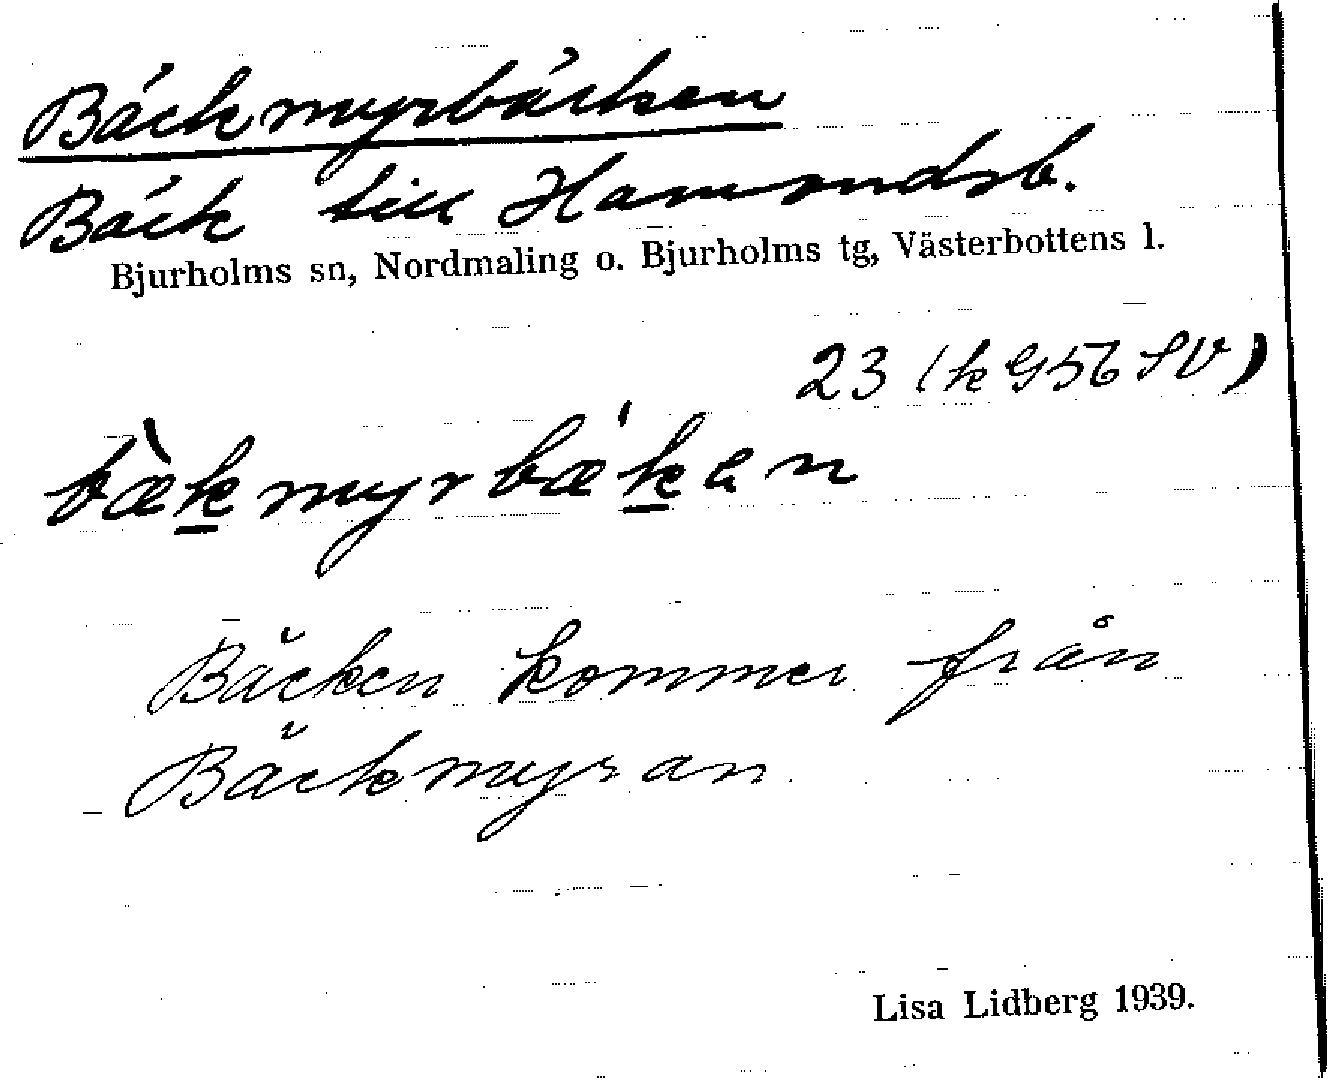 Bäckmyrbäcken
Bäck till
Bjurholms sn, Nordmaling o. Bjurholms tg, Västerbottens l.
23 (k G56 SV)
bæ̀k̲myrbæ'k̲en
Bäcken kommer från
Bäckmyran
Lisa Lidberg 1939.